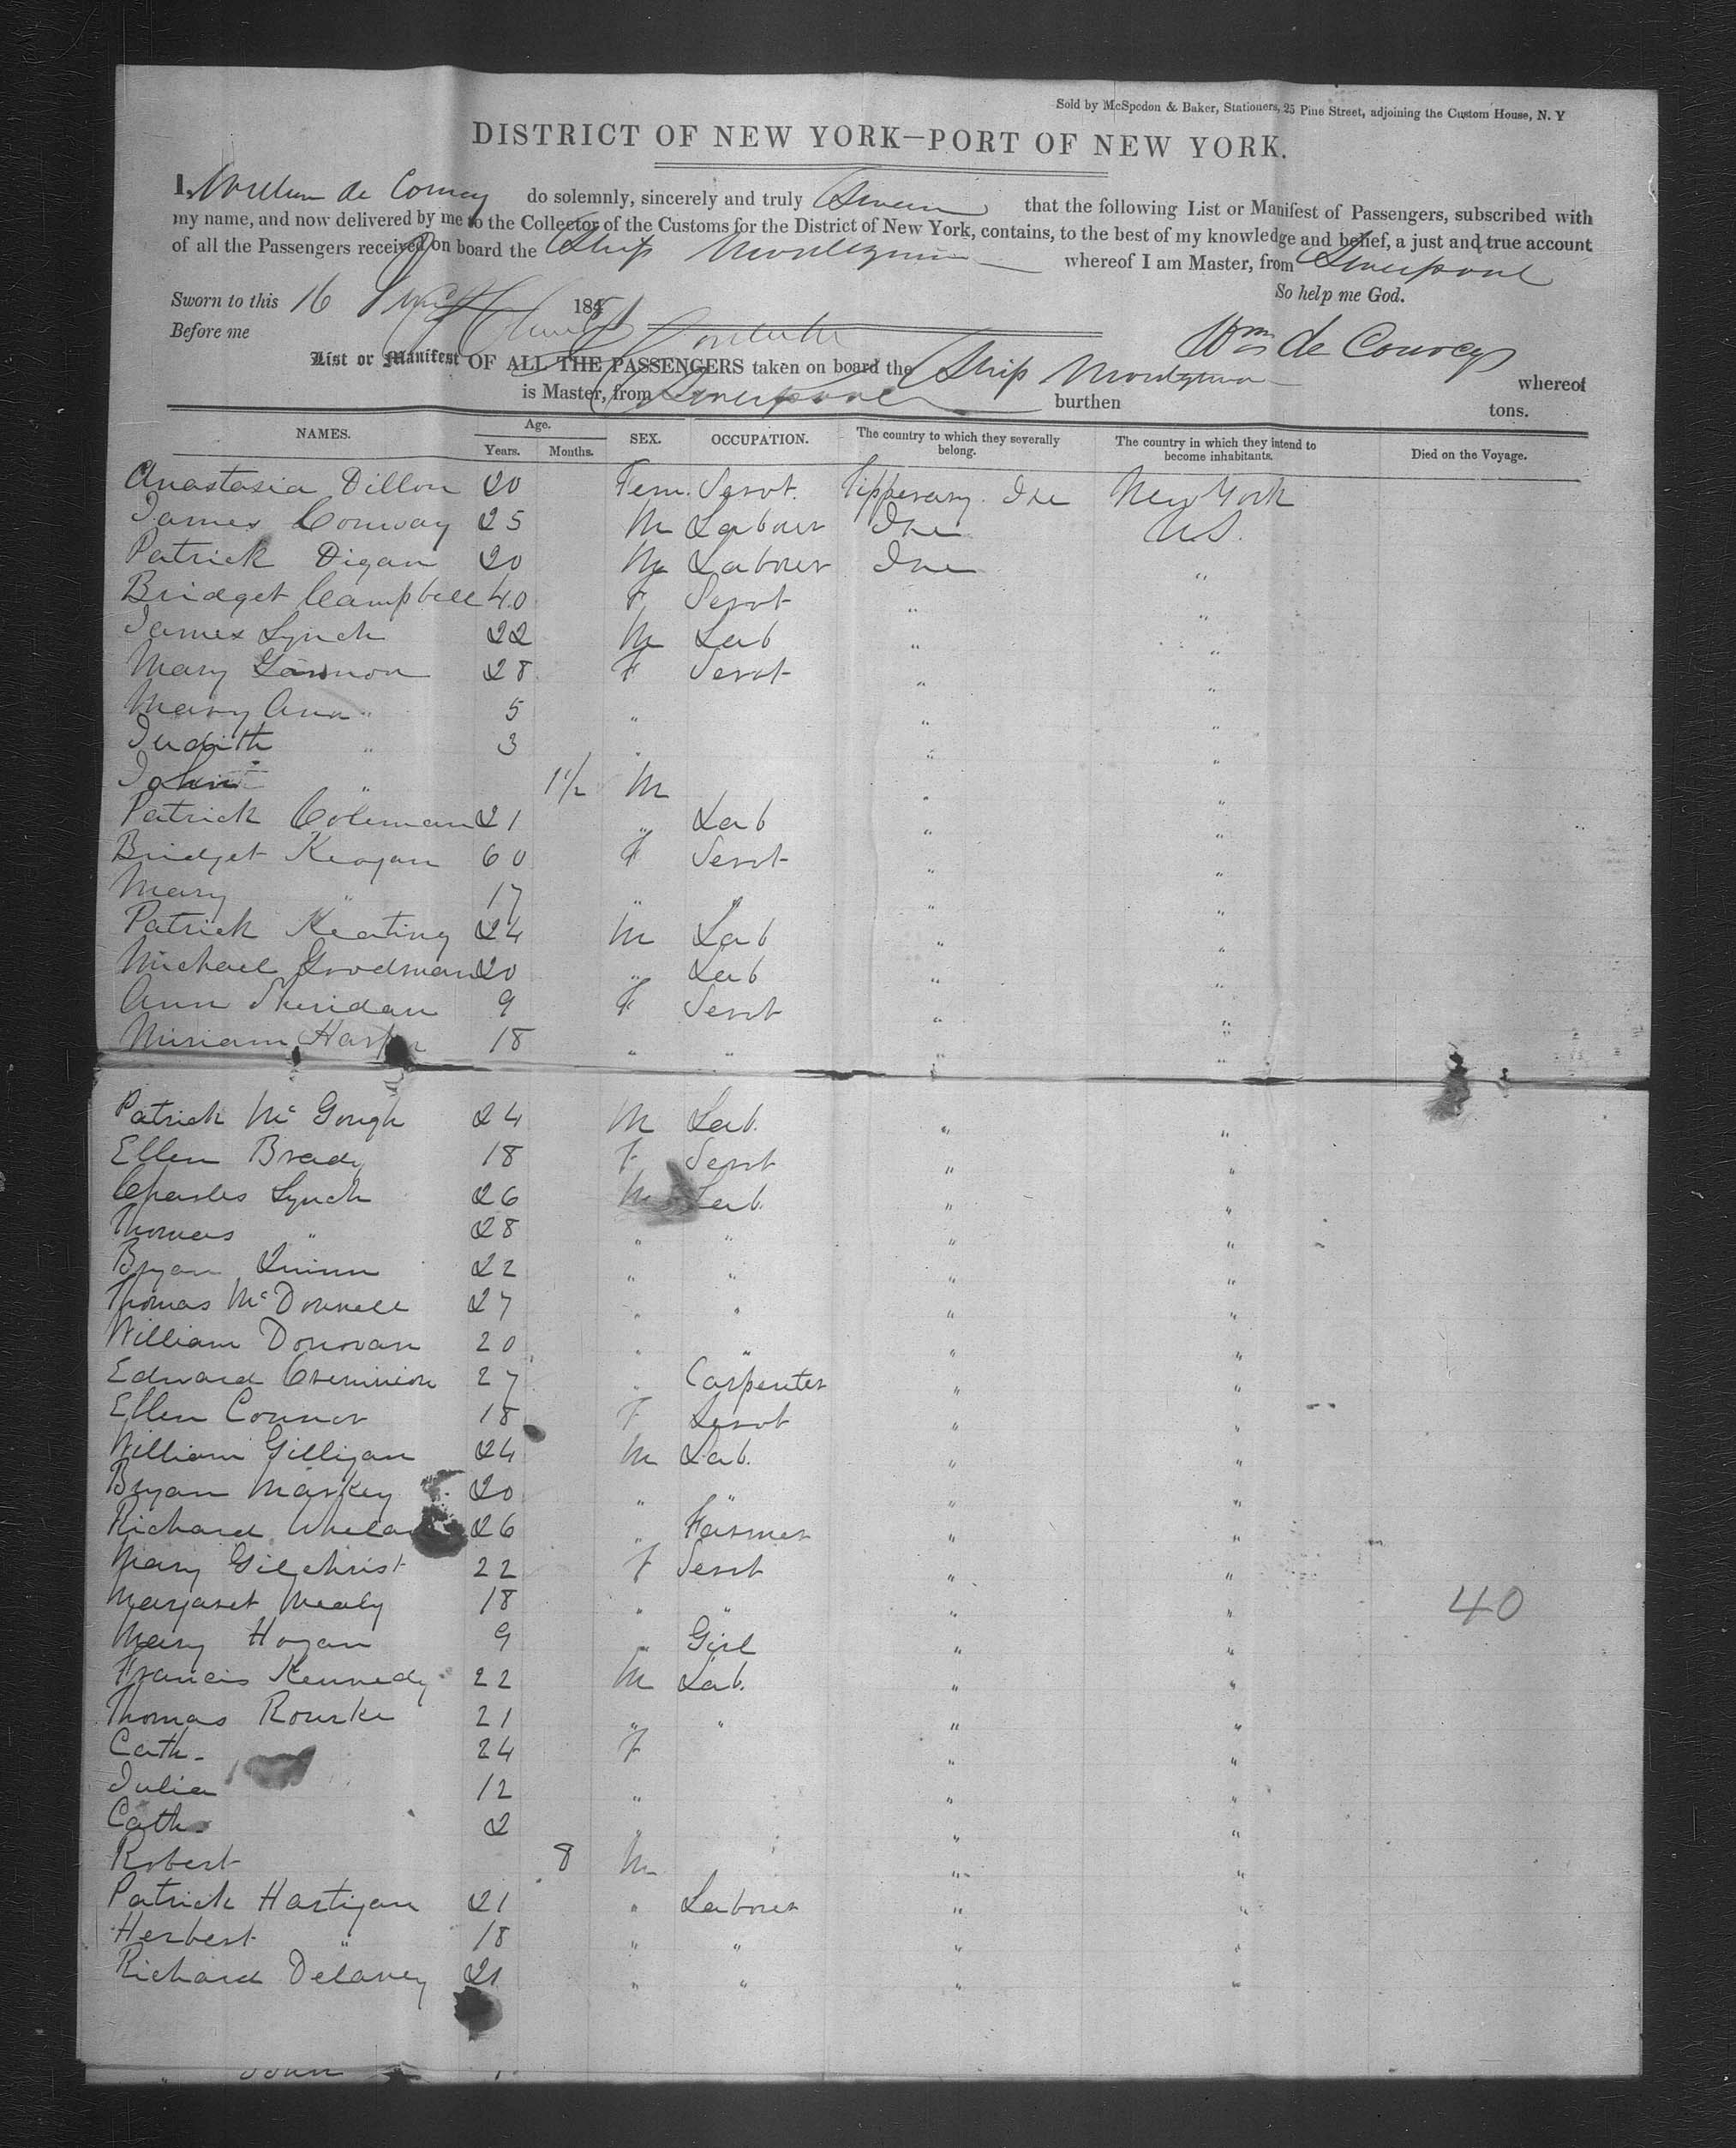 Sold by McSpedon & Baker, Stationers, 25 Pine Street, adjoining the Custom House, N. Y
DISTRICT OF NEW YORK—PORT OF NEW YORK.
I, William de Courcy do solemnly, sincerely and truly Swear that the following List or Manifest of Passengers, subscribed with
my name, and now delivered by me to the Collector of the Customs for the District of New York, contains, to the best of my knowledge and belief, a just and true account
of all the Passengers received on board the Ship Montezuma whereof I am Master, from Liverpool
Sworn to this 16 185 So help me God.
Before me Wm de Courcy
List or Manifest OF ALL THE PASSENGERS taken on board the Ship Montezuma whereof
is Master, from Liverpool burthen tons.
NAMES. Age. Years. Months. SEX. OCCUPATION. The country to which they severally belong. The country in which they intend to become inhabitants. Died on the Voyage.
Anastasia Dillon 20 Fem. Servt. Tipperary. Ire New York
James Conway 25 M Labourer Ire U.S.
Patrick Digan 20 M Labourer Ire "
Bridget Campbell 40 F Servt " "
James Lynch 22 M Lab " "
Mary Gannon 28 F Servt " "
Mary Ann " 5 " " "
Judith " 3 " " "
John " 1 1/2 M " "
Patrick Coleman 21 " Lab " "
Bridget Keogan 60 F Servt " "
Mary " 17 " " " "
Patrick Keating 24 M Lab " "
Michael Goodman 20 " Lab " "
Ann Sheridan 9 F Servt " "
Miriam 18 " " " "
Patrick McGough 24 M Lab. " "
Ellen Brady 18 F Servt " "
Charles Lynch 26 M Lab. " "
Thomas " 28 " " " "
Bryan Quinn 22 " " " "
Thomas McDonnell 27 " " " "
William Donovan 20 " " " "
Edward 27 " Carpenter " "
Ellen Connor 18 F Servt " "
William Gilligan 24 M Lab. " "
Bryan Markey 20 " " " "
Richard 26 " Farmer " "
Mary Gilchrist 22 F Servt " "
Margaret Mealy 18 " " " "
Mary Hogan 9 " Girl " "
Francis Kennedy 22 M Lab. " "
Thomas Rourke 21 " " " "
Cath. 24 F " "
Julia 12 " " "
Cath. 2 " " "
Robert 8 M " "
Patrick Hartigan 21 " Labourer " "
Herbert " 18 " " " "
Richard Delaney 21 " " " "
40